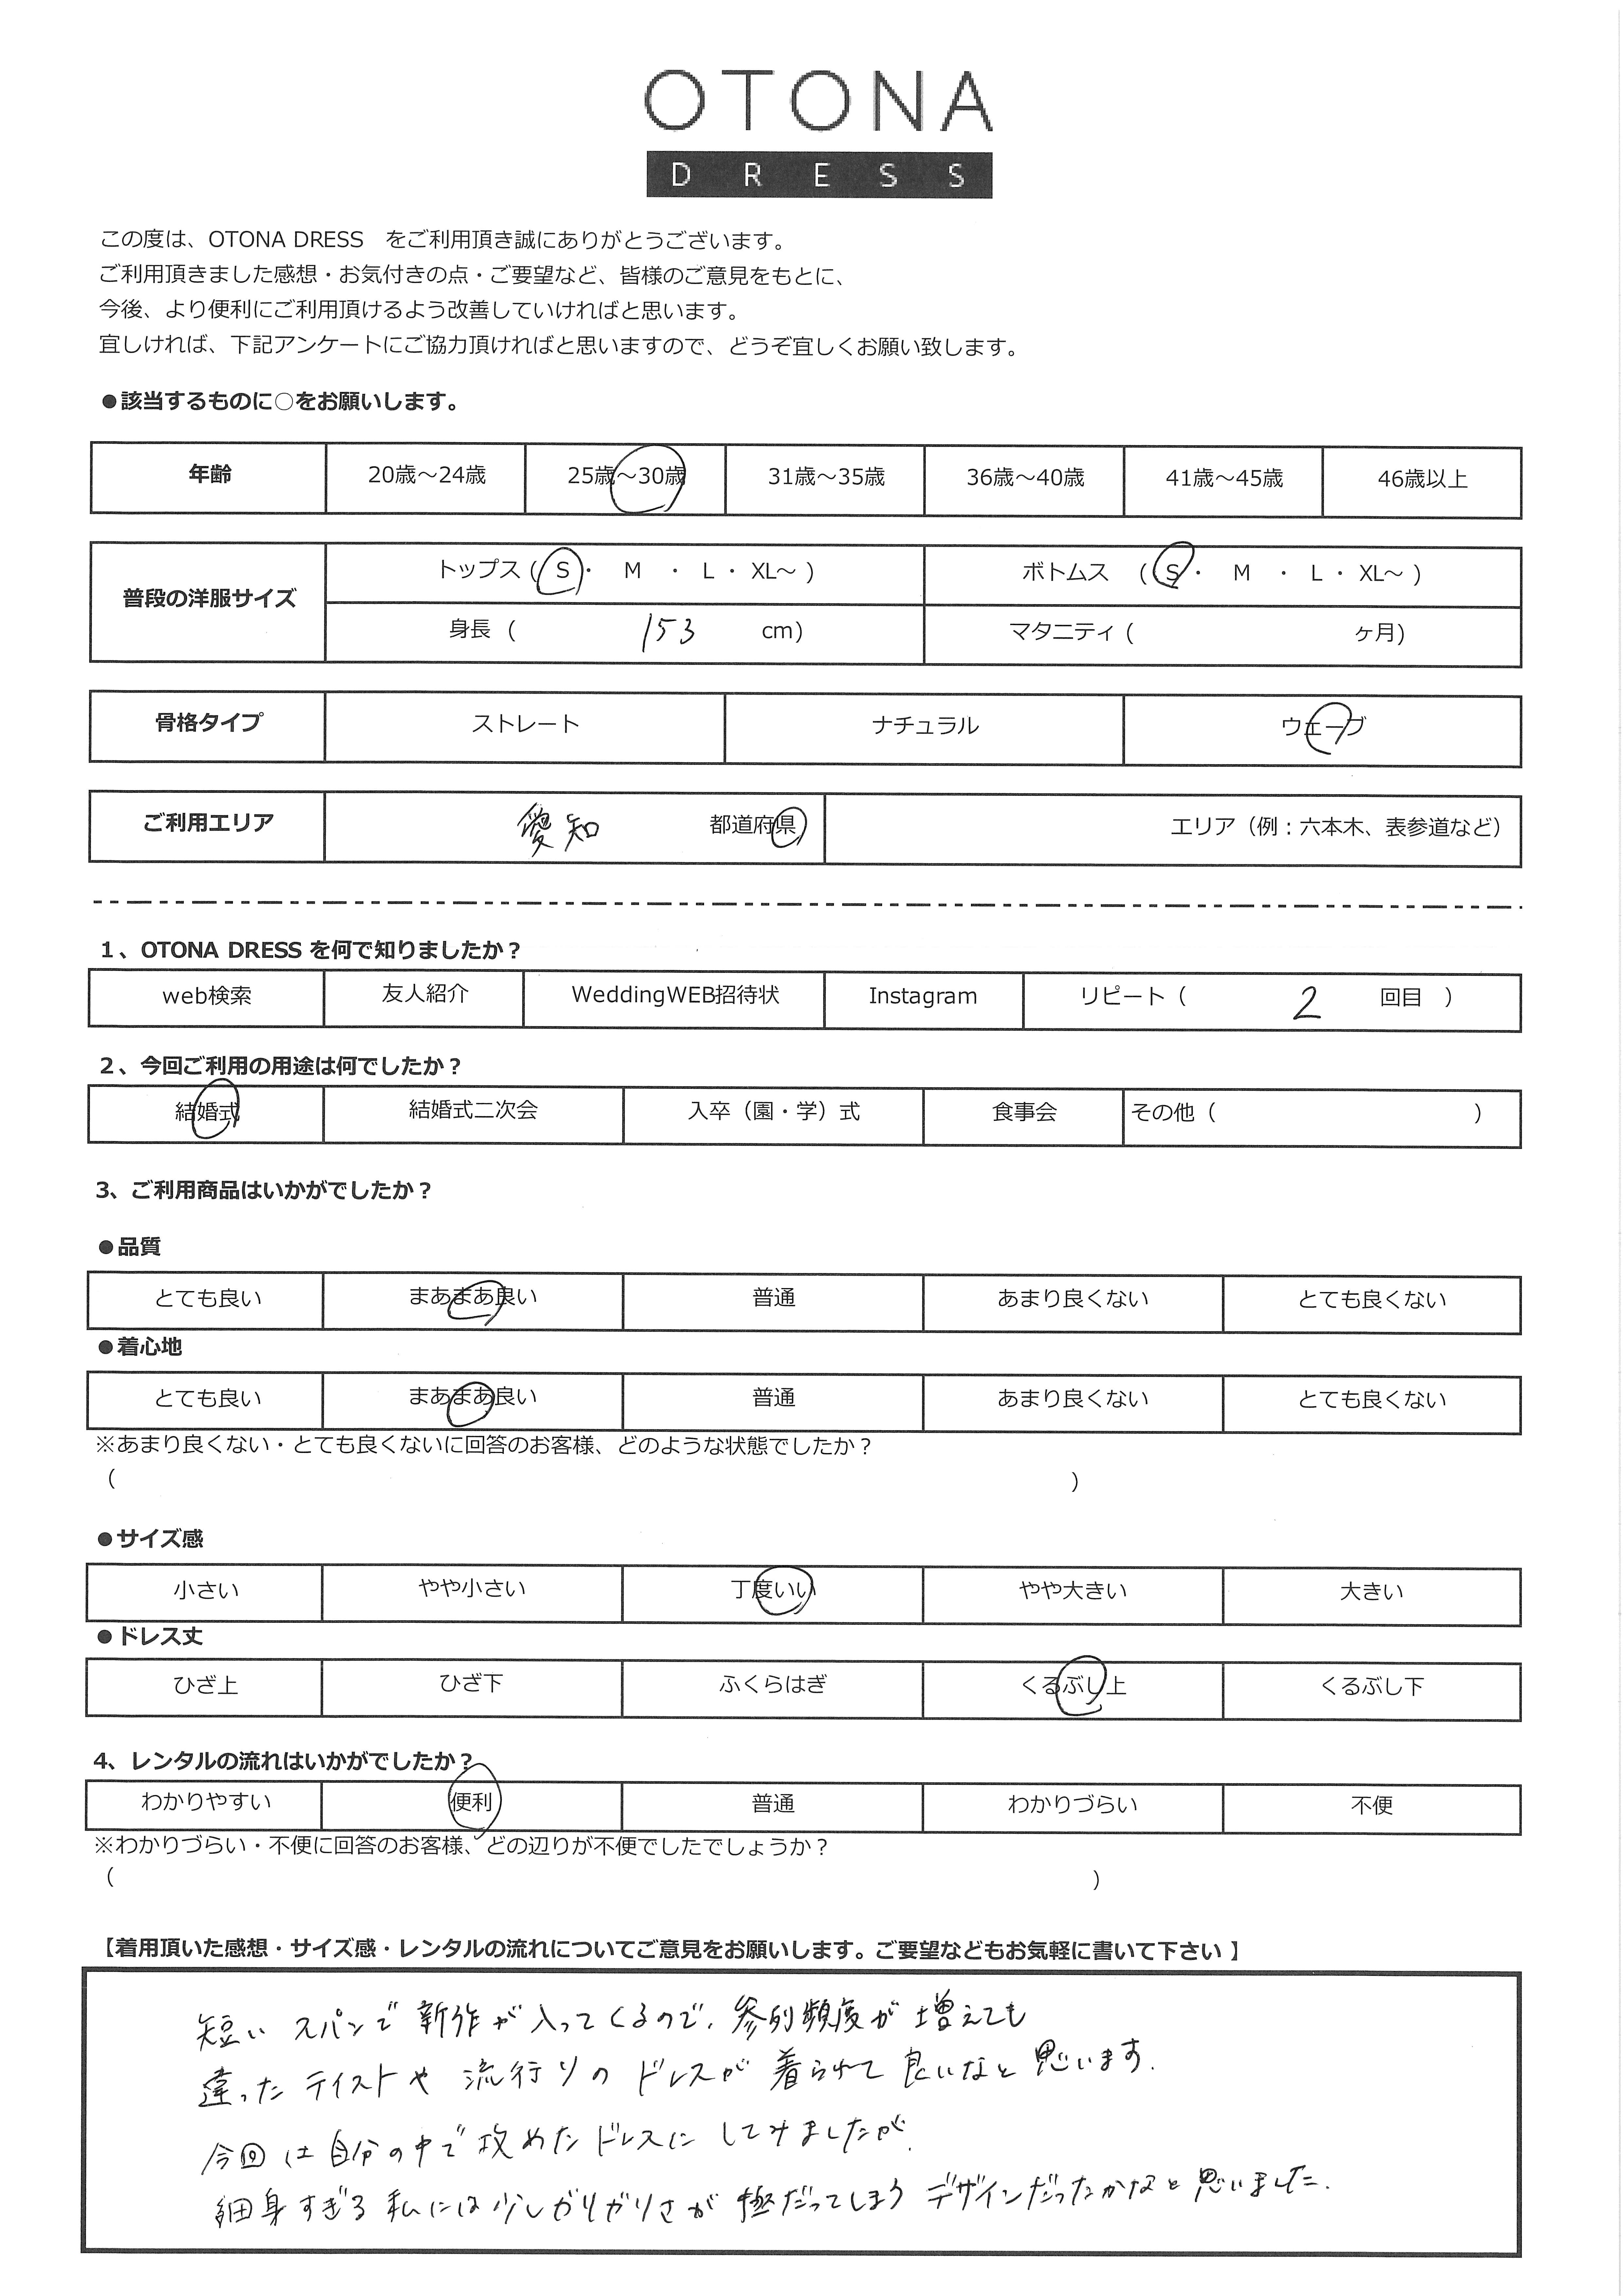 OTONA
DRESS
この度は、OTONA DRESS　をご利用頂き誠にありがとうございます。
ご利用頂きました感想・お気付きの点・ご要望など、皆様のご意見をもとに、
今後、より便利にご利用頂けるよう改善していければと思います。
宜しければ、下記アンケートにご協力頂ければと思いますので、どうぞ宜しくお願い致します。
●該当するものに○をお願いします。
年齢 20歳～24歳 25歳～30歳 31歳～35歳 36歳～40歳 41歳～45歳 46歳以上
普段の洋服サイズ トップス ( S ・ M ・ L ・ XL～ ) ボトムス ( S ・ M ・ L ・ XL～ )
身長 ( 153 cm) マタニティ ( ヶ月)
骨格タイプ ストレート ナチュラル ウェーブ
ご利用エリア 愛知 都道府県 エリア（例：六本木、表参道など）
1、OTONA DRESS を何で知りましたか？
web検索 友人紹介 WeddingWEB招待状 Instagram リピート（ 2 回目 ）
2、今回ご利用の用途は何でしたか？
結婚式 結婚式二次会 入卒（園・学）式 食事会 その他（ ）
3、ご利用商品はいかがでしたか？
●品質
とても良い まあまあ良い 普通 あまり良くない とても良くない
●着心地
とても良い まあまあ良い 普通 あまり良くない とても良くない
※あまり良くない・とても良くないに回答のお客様、どのような状態でしたか？
（ ）
●サイズ感
小さい やや小さい 丁度いい やや大きい 大きい
●ドレス丈
ひざ上 ひざ下 ふくらはぎ くるぶし上 くるぶし下
4、レンタルの流れはいかがでしたか？
わかりやすい 便利 普通 わかりづらい 不便
※わかりづらい・不便に回答のお客様、どの辺りが不便でしたでしょうか？
（ ）
【着用頂いた感想・サイズ感・レンタルの流れについてご意見をお願いします。ご要望などもお気軽に書いて下さい 】
短い スパンで 新作が 入ってくるので、参列頻度が 増えても
違った テイストや 流行りの ドレスが 着られて 良いなと 思います.
今回は 自分の中で 攻めた ドレスに してみましたが.
細身すぎる 私には 少しガリガリさが 極だってしまう デザインだったかなと 思いました.